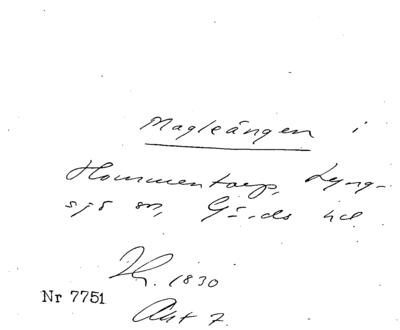 Magleängen i
Hommentorp, Lyng-
sjö sn, Gärds hd
Th. 1830
Nr 7751
Akt 7